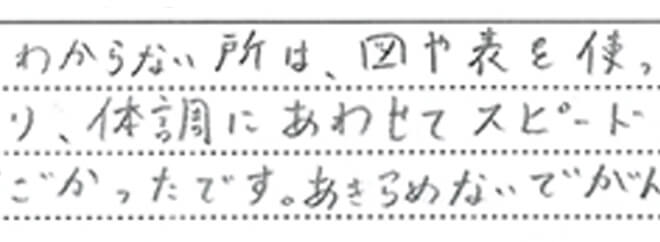 わからない所は、図や表を使っ
り、体調にあわせてスピード
ごかったです。あきらめないでがん